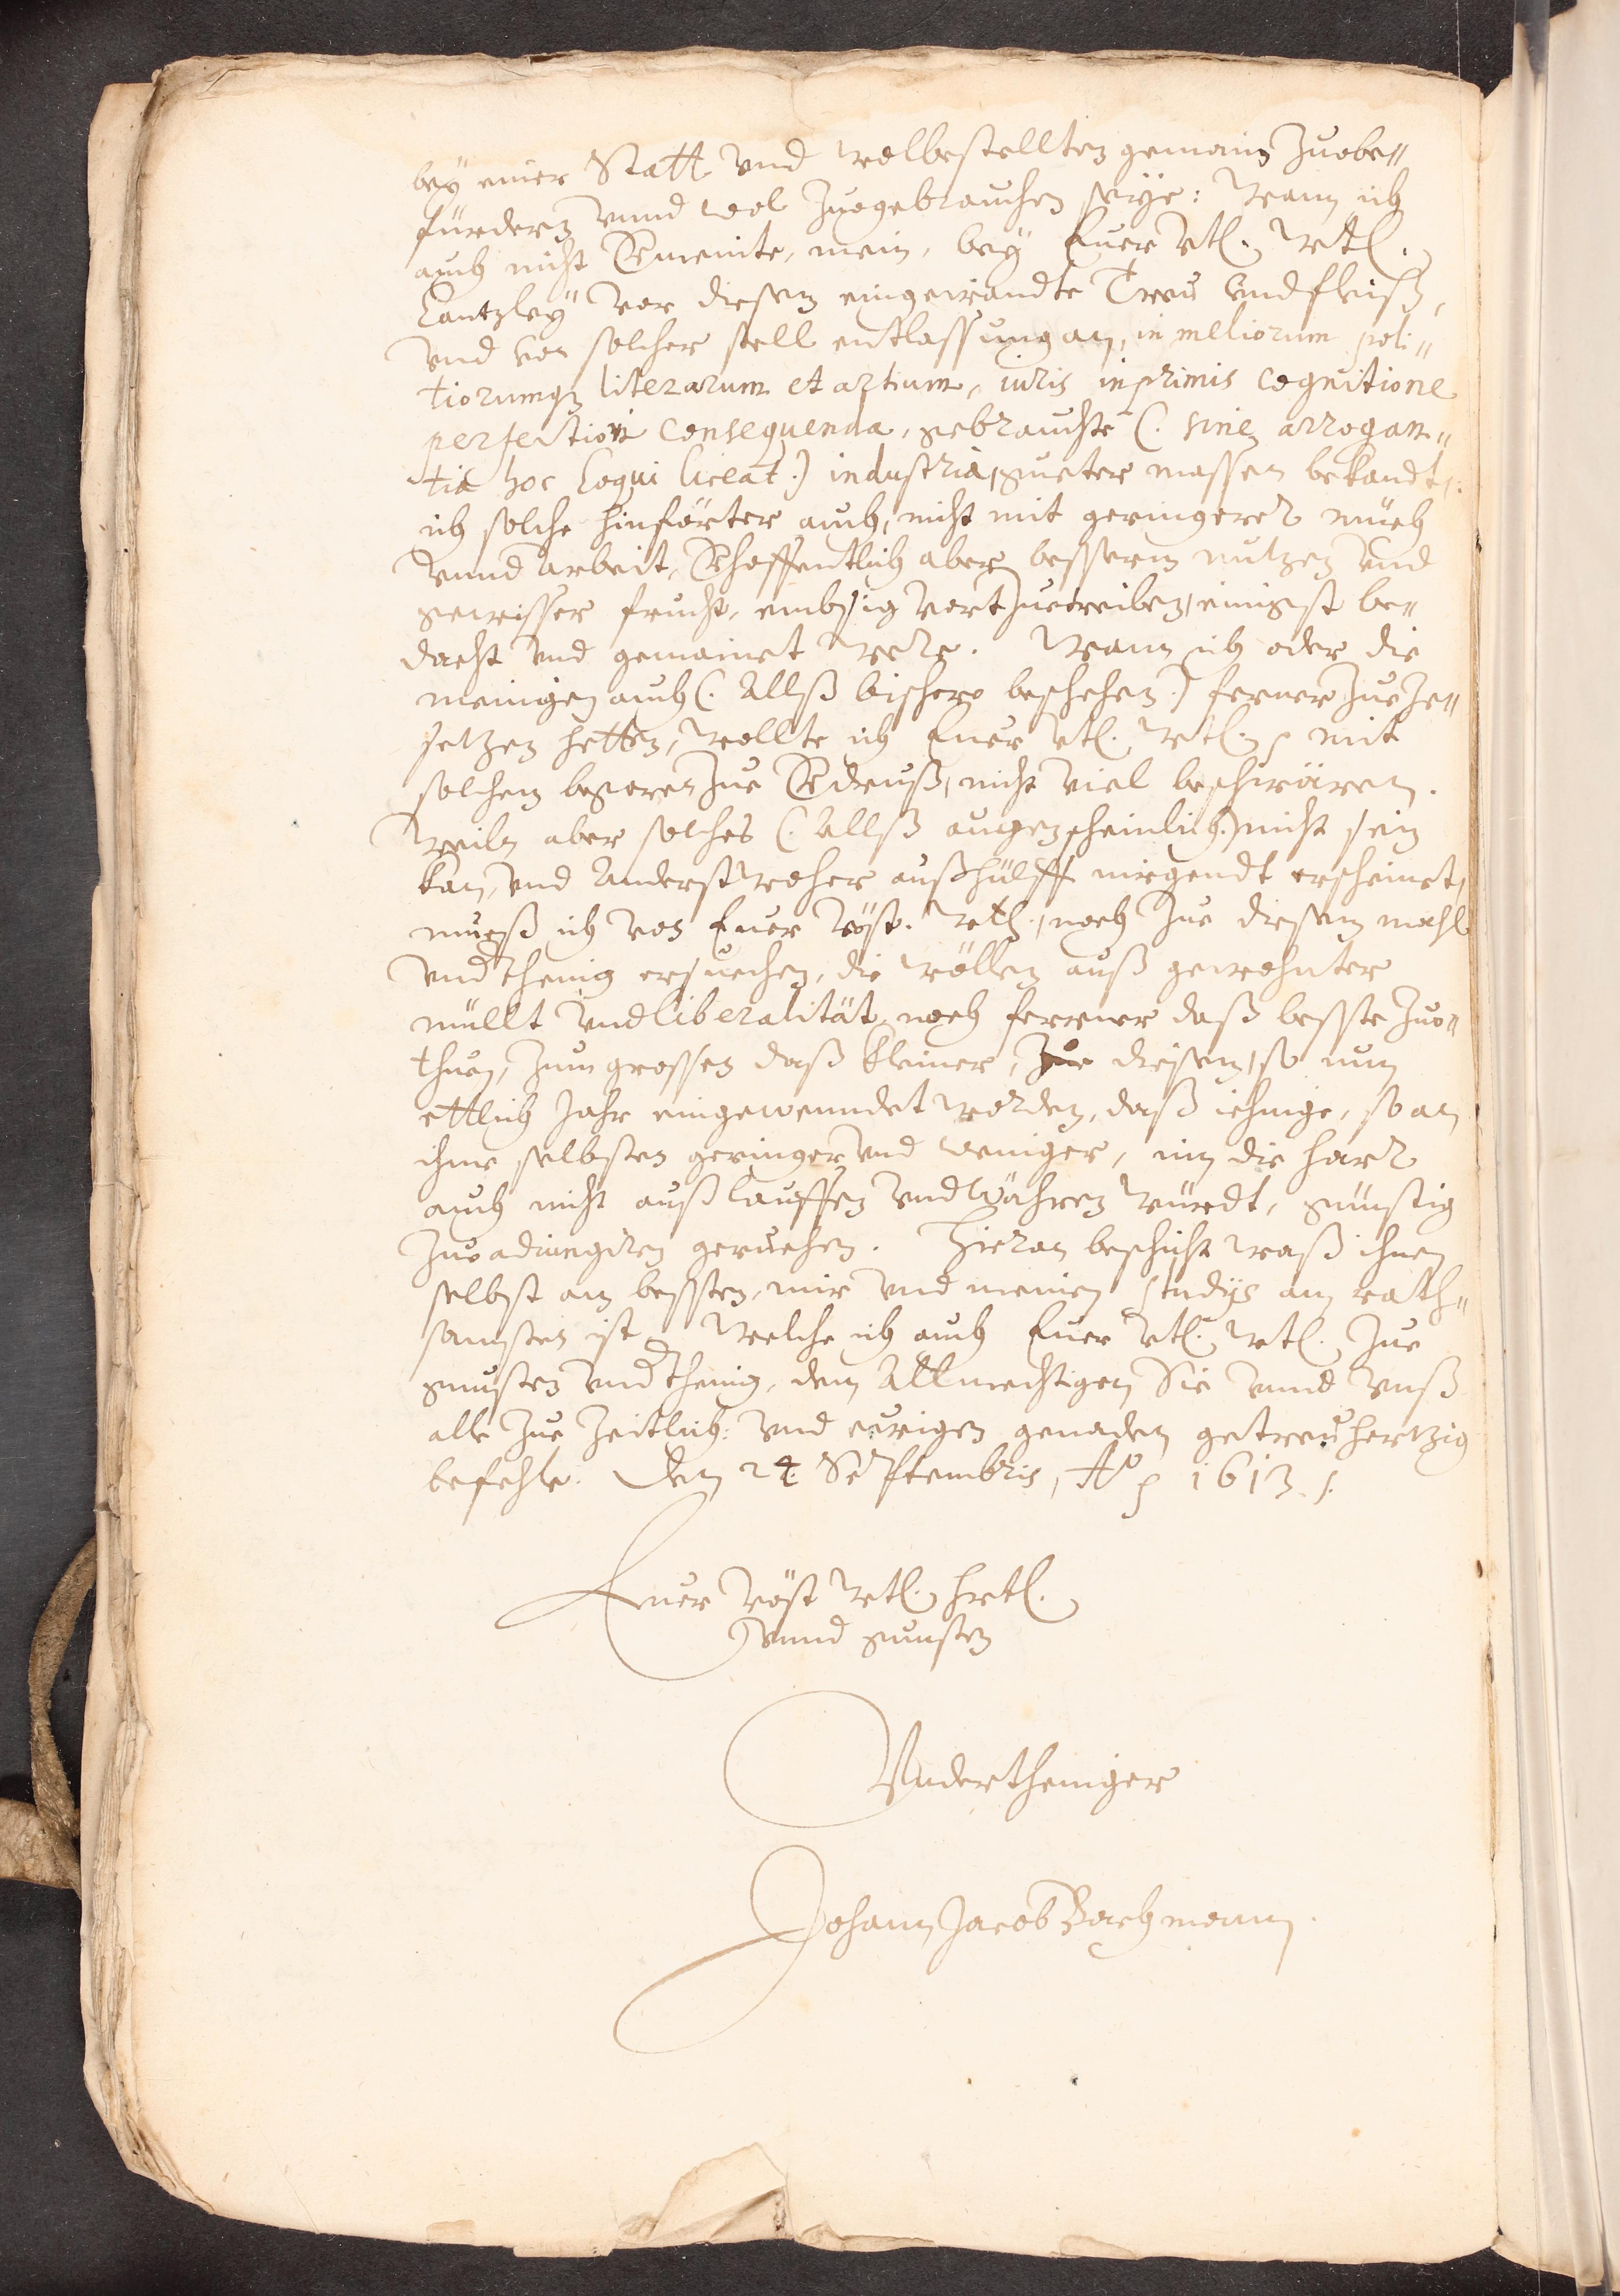 bey einer Statt vnd wolbestellten gemain Zuobe„
fürdern vnnd wol Zuogebrauchen seye: Wann ich
auch nicht vermeinte, mein, bey Euer vtl. wtl.
Cantzley vor diesem eingewandte Trew vnd fleiß,
vnd von solcher stell entlassung an, in meliorum poli„
tiorumq3 literarum et artium, iuris inprimis cognitione
perfectiori consequenda, gebrauchte (. sine arrogan„
tia hoc loqui liceat .) industria, gueter massen bekandt,
ich solche hinförter auch, nicht mit geringerer müeh
vnnd arbeit, verhoffentlich aber besserm nutzen vnd
gewisser frucht, embsig vortzuetreiben, einigist be„
dacht vnd gemainet were. Wann ich oder die
meinigen auch (. Allß bishero beschehen .) ferner Zue Ze„
setzen hetten, wollte ich Euer vtl. wtl. mit
solchem begeren Zue verdruß, nicht viel beschwären.
Weiln aber solches (. Allß augenscheinlich .) nicht sein
kan, vnd Anderstwoher außhülff nirgendt erscheinet,
mueß ich von Euer vöst. wtl., noch Zue diesem mahl
vndthenig ersuechen, die wöllen auß gewohnter
müllt vnd liberalität, noch ferrner daß besste Zuo„
thuen, Zum grossen daß kleiner, Zue diesem, so nun
ettlich Jahr eingewenndet worden, daß iehnige, so an
ihme selbsten geringer vnd weniger, inn die harr
auch nicht außlauffen vnd währen würdt, günstig
Zuo adiungirn geruehen. Hieran beschicht waß ihnen
selbst am bessten, mir vnd meinen studijs am rath„
samsten ist, Welche ich auch Euer vtl. wtl. Zue
gunsten vndthenig, dem Allmechtigen Sie vnnd vnß
alle Zue Zeitlich: vnd ewigen genaden getrewhertzig
befehle. Den 24 Septembris, Ao 1613.
Euer vöst wtl. hrtl.
vnnd gunsten
Vndertheniger
Johann Jacob Bachmann.